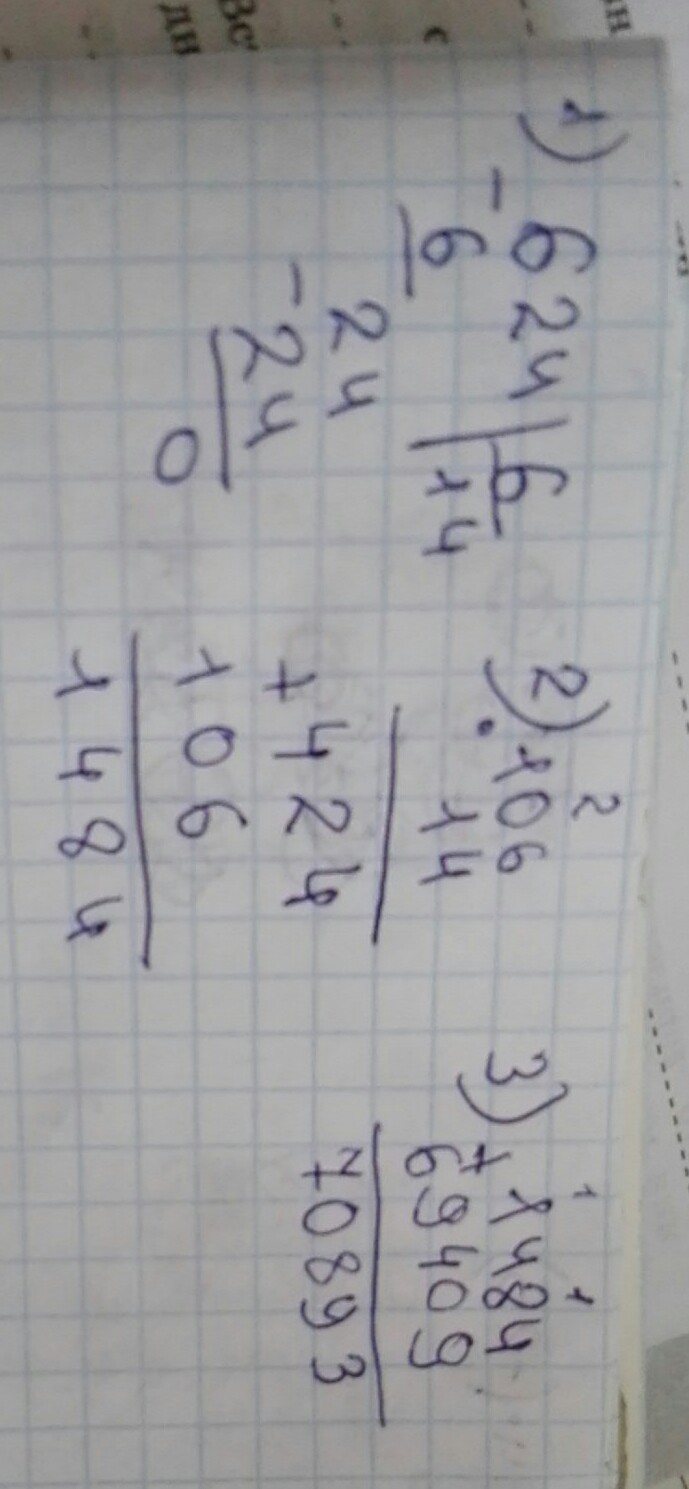 1) - 624 | 6
6 | 14
24
- 24
0
2) 2
· 106
14
+ 424
106
1484
3) 1 1
+ 1484
69409
70893